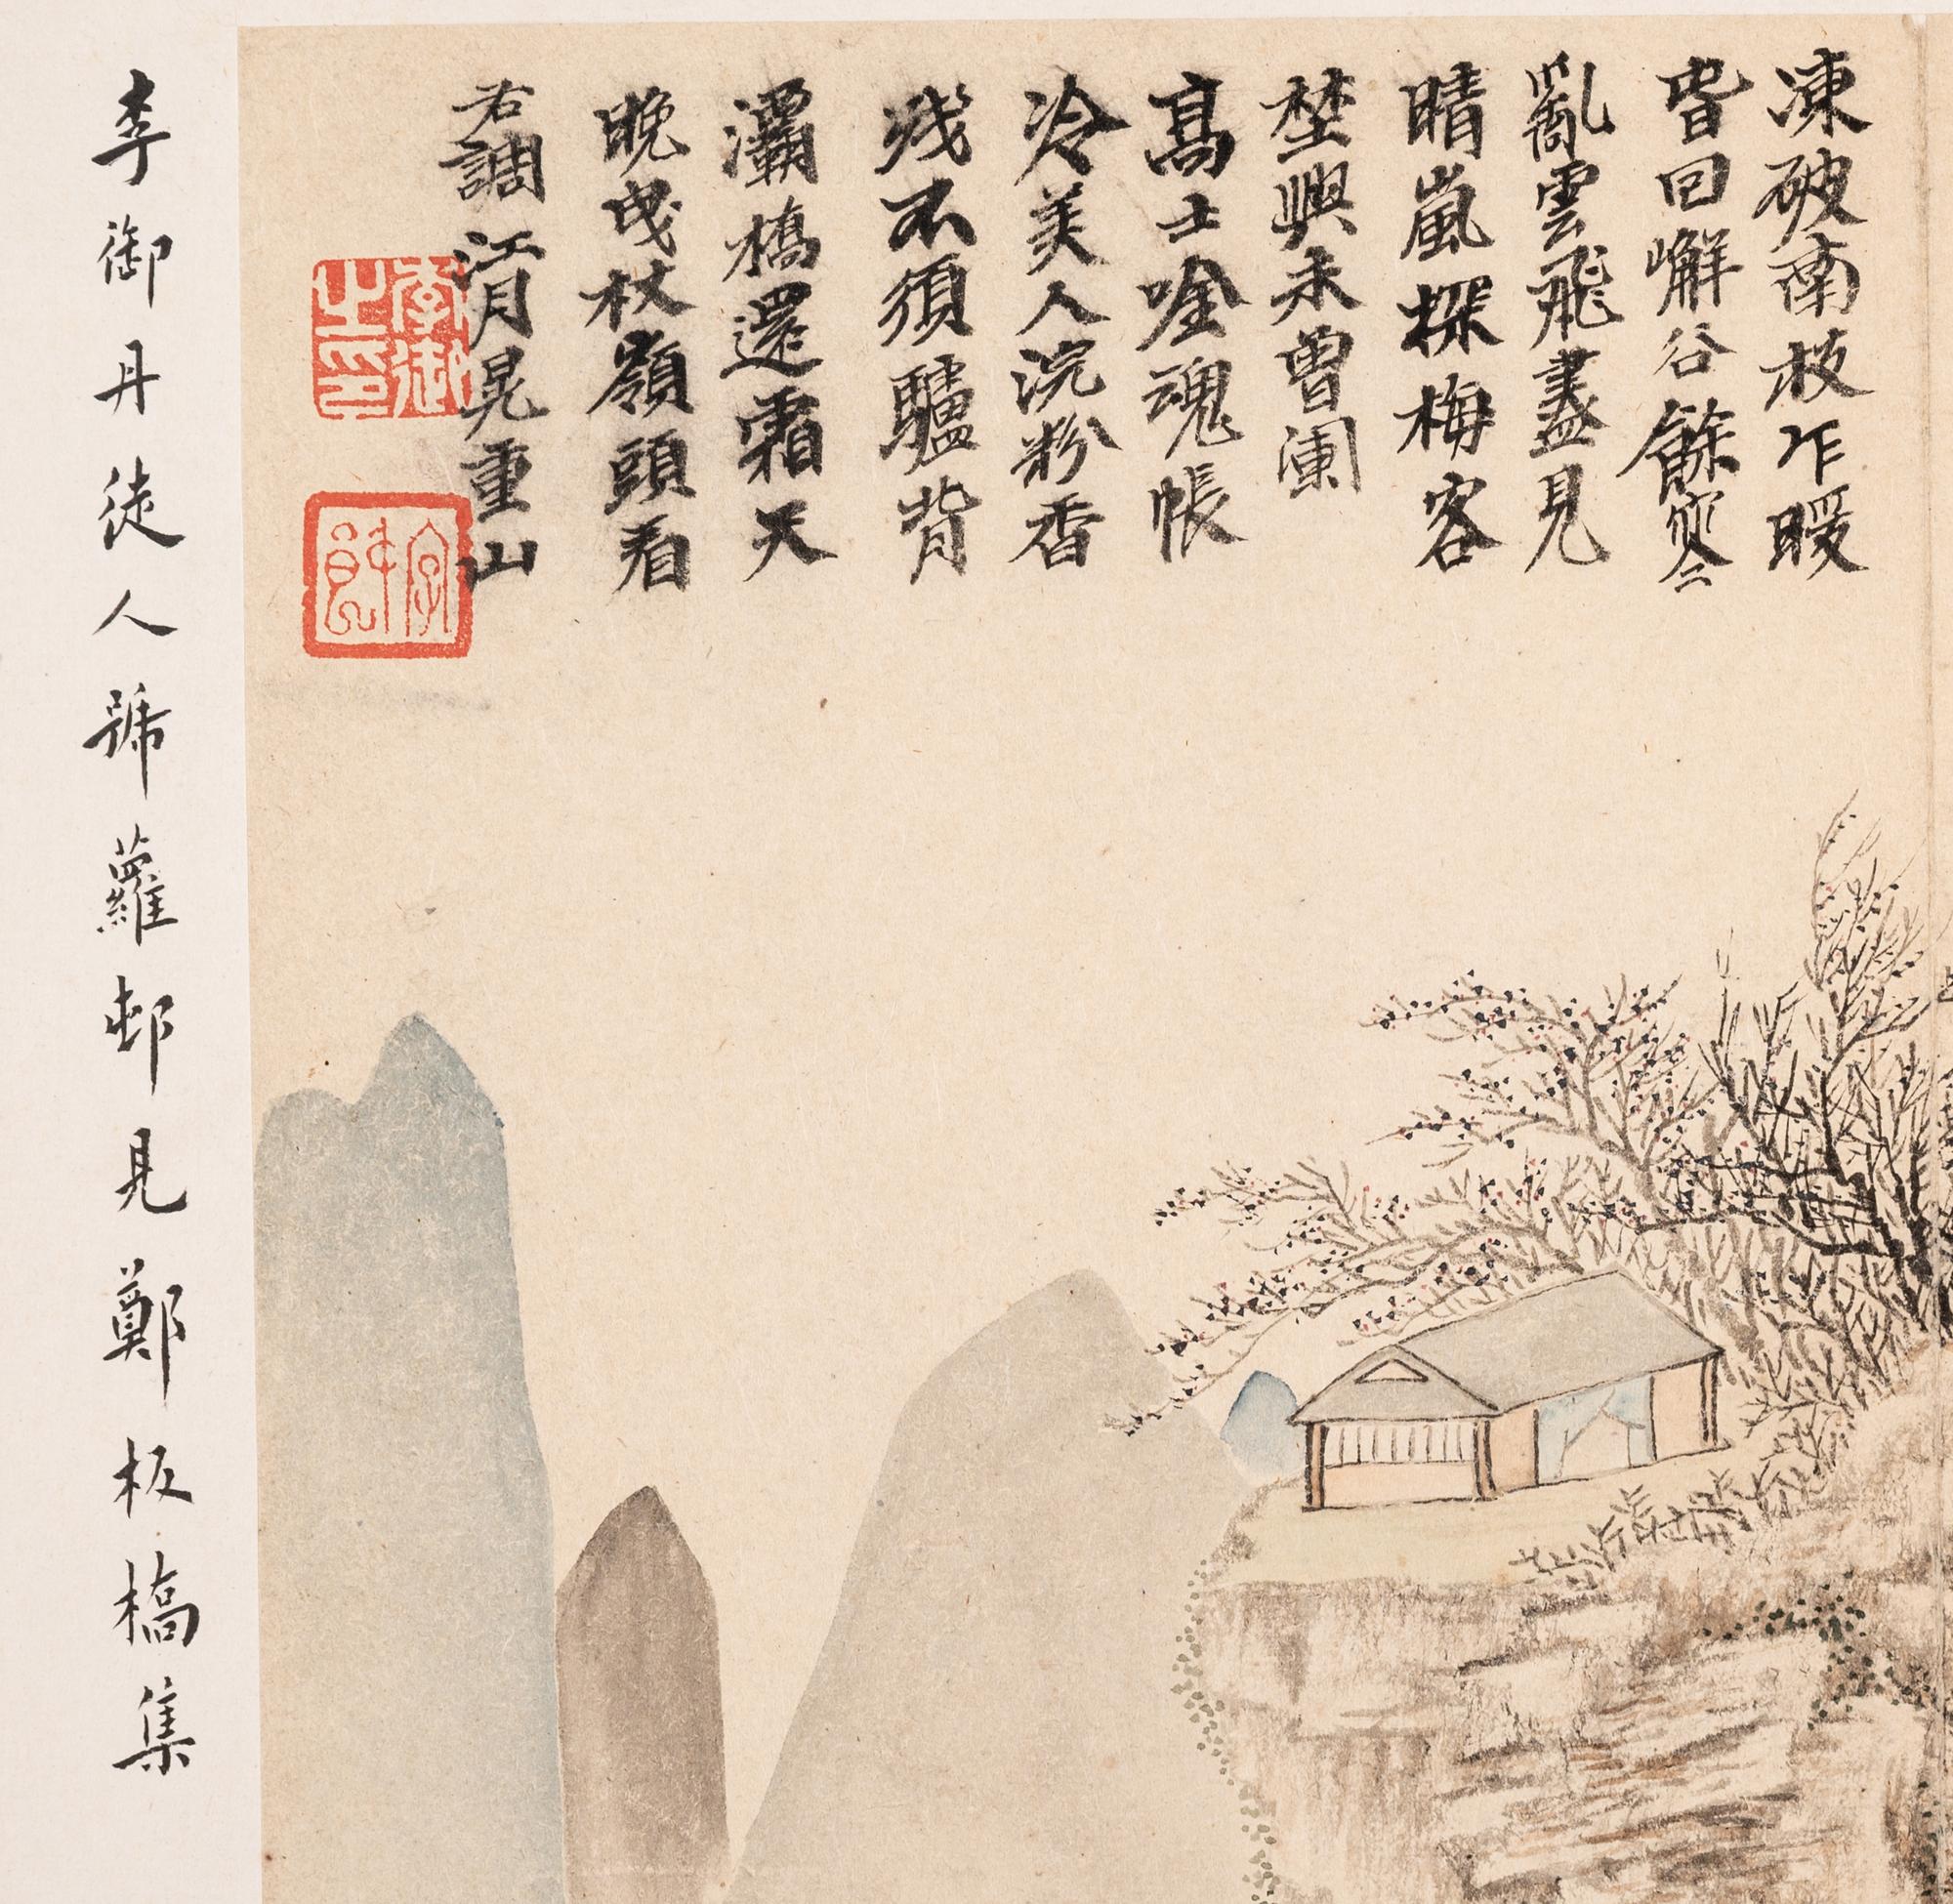 凍破南枝乍暖
旹回嶰谷餘寒
亂雲飛盡見
晴嵐探梅客
埜嶼未曾闌
高士唫魂帳
冷美人浣粉香
殘不須驢背
灞橋還霜天
晚曳杖嶺頭看
右調江月晃重山
李御之印
李御丹徒人號蘿邨見鄭板橋集